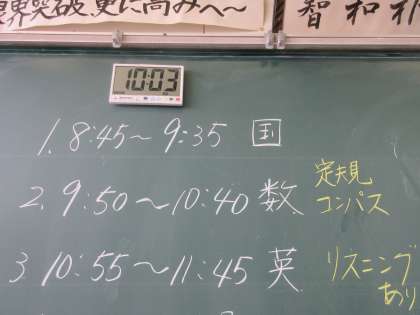 限界突破更に高みへ〜
智和
10:03
1. 8:45〜9:35 国
2. 9:50〜10:40 数 定規 コンパス
3. 10:55〜11:45 英 リスニング あり